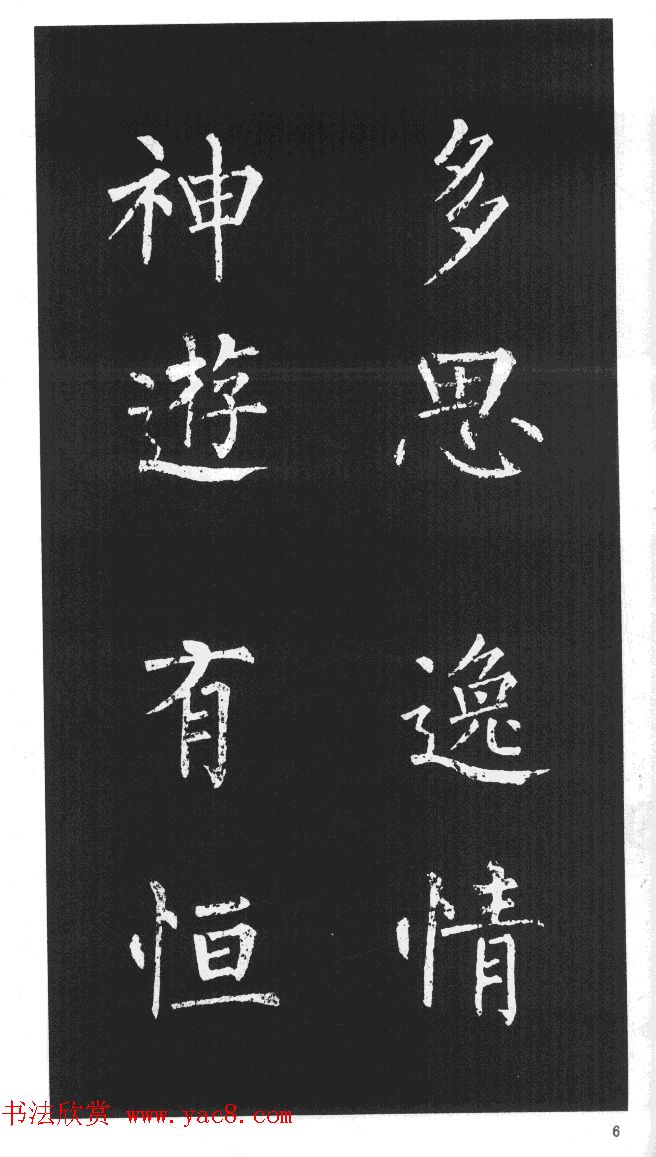 多思逸情
神遊有恒
书法欣赏 www.yac8.com
6